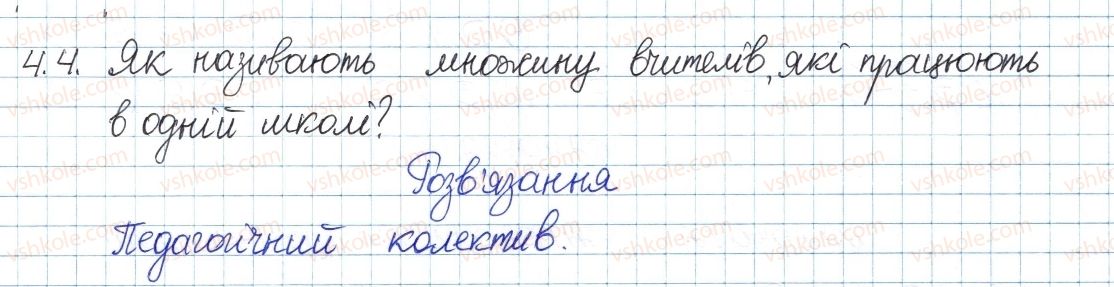 4.4. Як називають множину вчителів, які працюють
в одній школі?
Розв'язання
Педагогічний колектив.